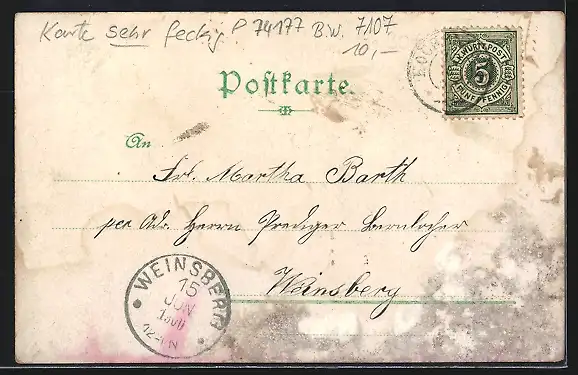 Karte sehr fleckig P 74177 B.W. 7107
10,-
K. WÜRTT. POST
5
FÜNF PFENNIG
Postkarte.
An
Frl. Martha Barth
per Adr. Herrn Prediger
Weinsberg
WEINSBERG
15
JUN